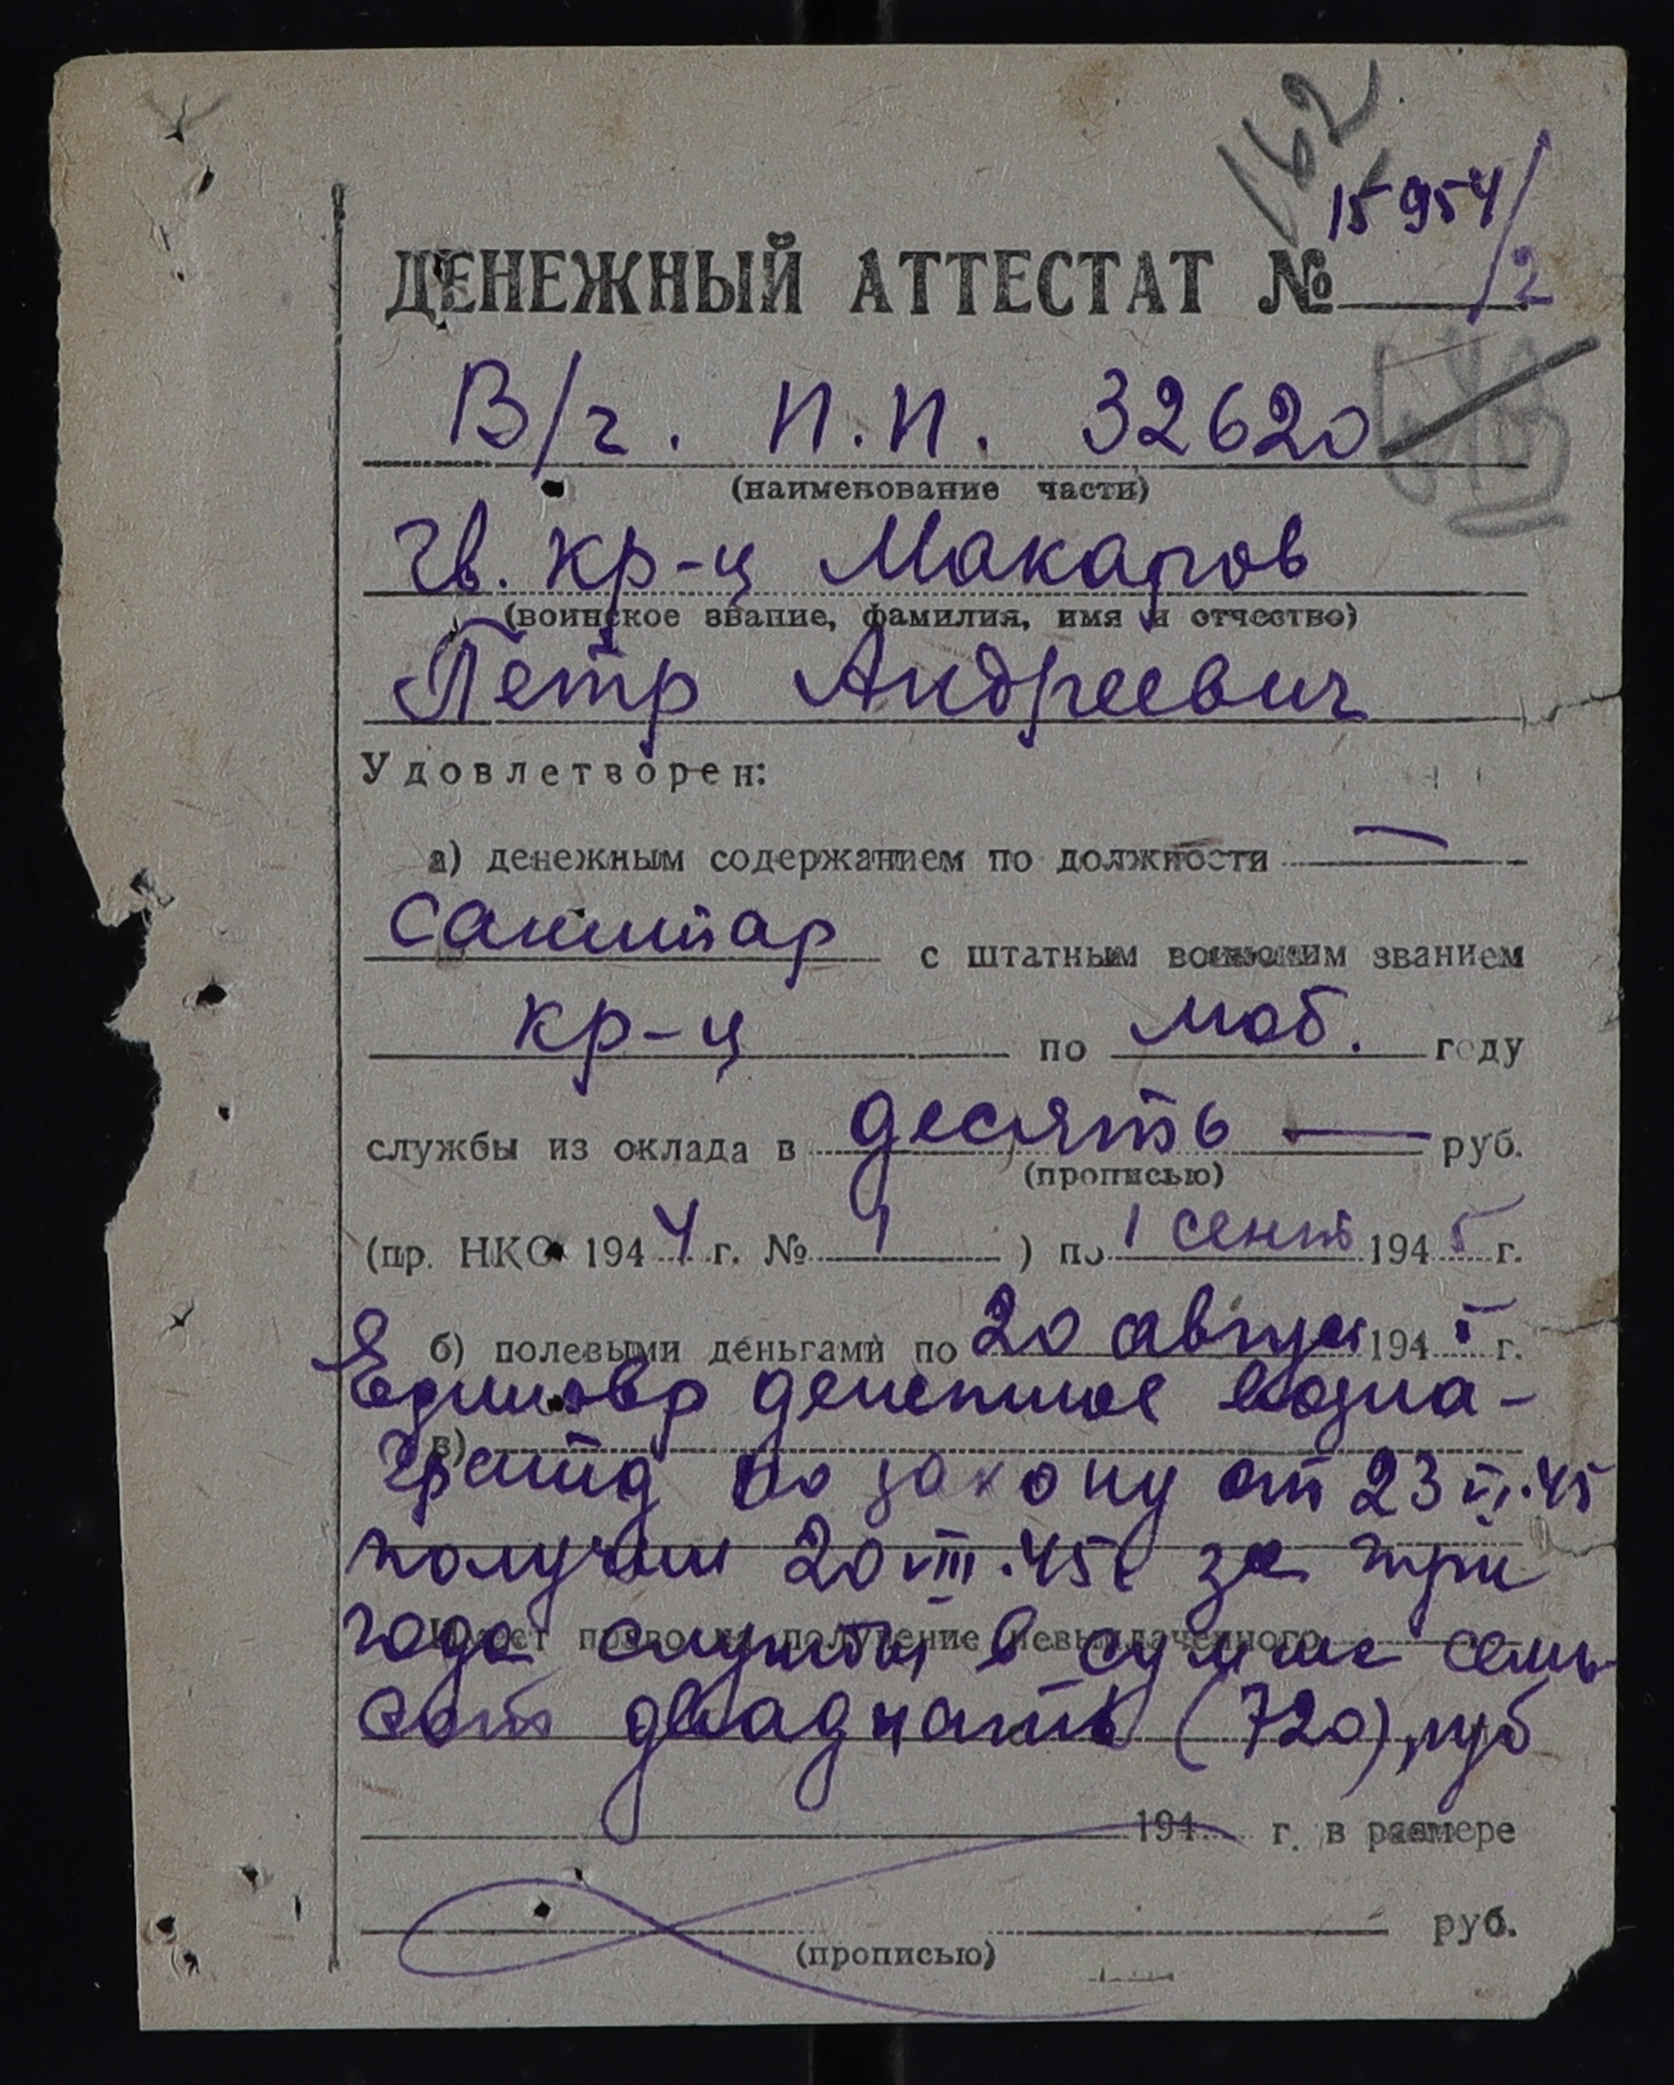 162
15954/2
ДЕНЕЖНЫЙ АТТЕСТАТ №
В/ч. п.п. 32620
(наименование части)
гв. кр-ц Макаров
(воинское звание, фамилия, имя и отчество)
Петр Андреевич
Удовлетворен:
а) денежным содержанием по должности —
санитар с штатным воинским званием
кр-ц по моб. году
службы из оклада в десять — руб.
(прописью)
(пр. НКО 1944 г. № 1 ) по 1 сент 1945 г.
б) полевыми деньгами по 20 август 1945 г.
Единовр денежное возна-
в)
гражд по закону от 23 VI.45
получил 20 VIII.45г за три
года службы в сумме семь
Имеет право на получение невыплаченного
сот двадцать (720) руб
194 г. в размере
руб.
(прописью)